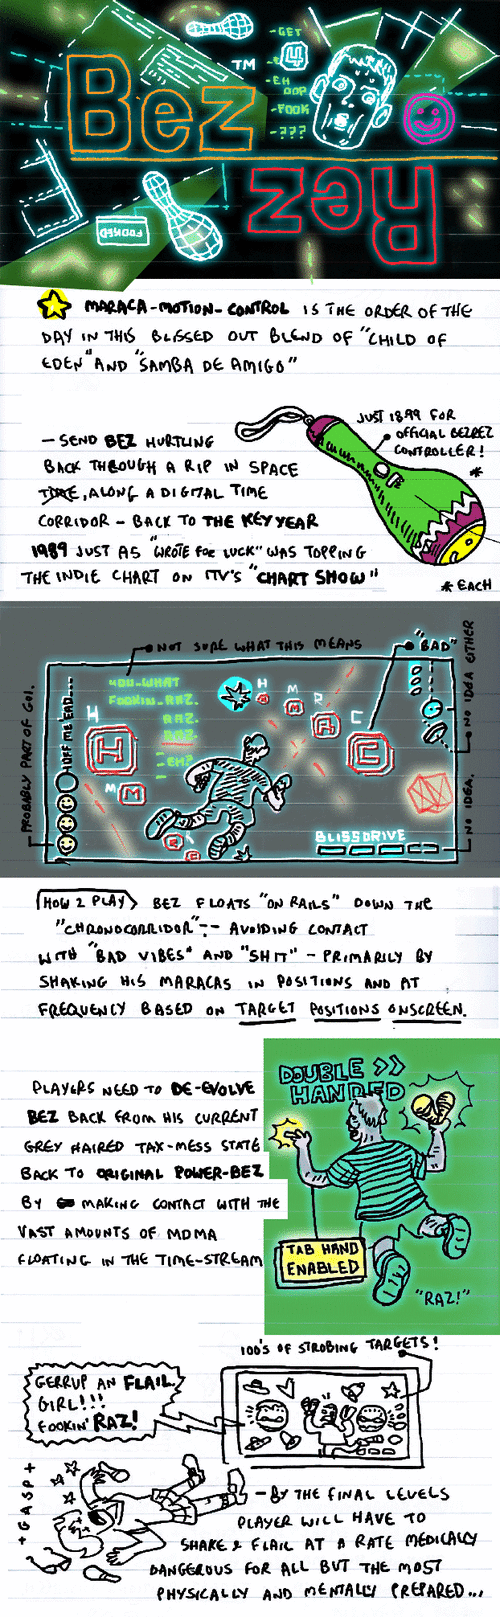 Bez
TM
-GET
4
-EH
OOP
-FOOK
-???
Rez
FOOKED
MARACA-MOTION-CONTROL IS THE ORDER OF THE
DAY IN THIS BLISSED OUT BLEND OF "CHILD OF
EDEN" AND "SAMBA DE AMIGO"
JUST 18.99 FOR
OFFICIAL BEZREZ
CONTROLLER!
*
- SEND BEZ HURTLING
BACK THROUGH A RIP IN SPACE
TIME, ALONG A DIGITAL TIME
CORRIDOR - BACK TO THE KEY YEAR
1989 JUST AS "WROTE FOR LUCK" WAS TOPPING
THE INDIE CHART ON ITV'S "CHART SHOW"
* EACH
NOT SURE WHAT THIS MEANS
"BAD"
NO IDEA EITHER
PROBABLY PART OF GUI.
YOU-WHAT
FOOKIN-RAZ-
RAZ-
RAZ-
-EH?
H
H
M
M
H
M
R
C
C
BLISSDRIVE
NO IDEA.
HOW 2 PLAY > BEZ FLOATS "ON RAILS" DOWN THE
"CHRONOCORRIDOR" -- AVOIDING CONTACT
WITH "BAD VIBES" AND "SHIT" - PRIMARILY BY
SHAKING HIS MARACAS IN POSITIONS AND AT
FREQUENCY BASED ON TARGET POSITIONS ONSCREEN.
DOUBLE >>
HANDED
PLAYERS NEED TO DE-EVOLVE
BEZ BACK FROM HIS CURRENT
GREY HAIRED TAX-MESS STATE
BACK TO ORIGINAL POWER-BEZ
BY MAKING CONTACT WITH THE
VAST AMOUNTS OF MDMA
FLOATING IN THE TIME-STREAM
TAB HAND
ENABLED
"RAZ!"
100'S OF STROBING TARGETS!
GERRUP AN FLAIL.
GIRL!!!
FOOKIN' RAZ!
+ GASP +
- BY THE FINAL LEVELS
PLAYER WILL HAVE TO
SHAKE & FLAIL AT A RATE MEDICALLY
DANGEROUS FOR ALL BUT THE MOST
PHYSICALLY AND MENTALLY PREPARED...